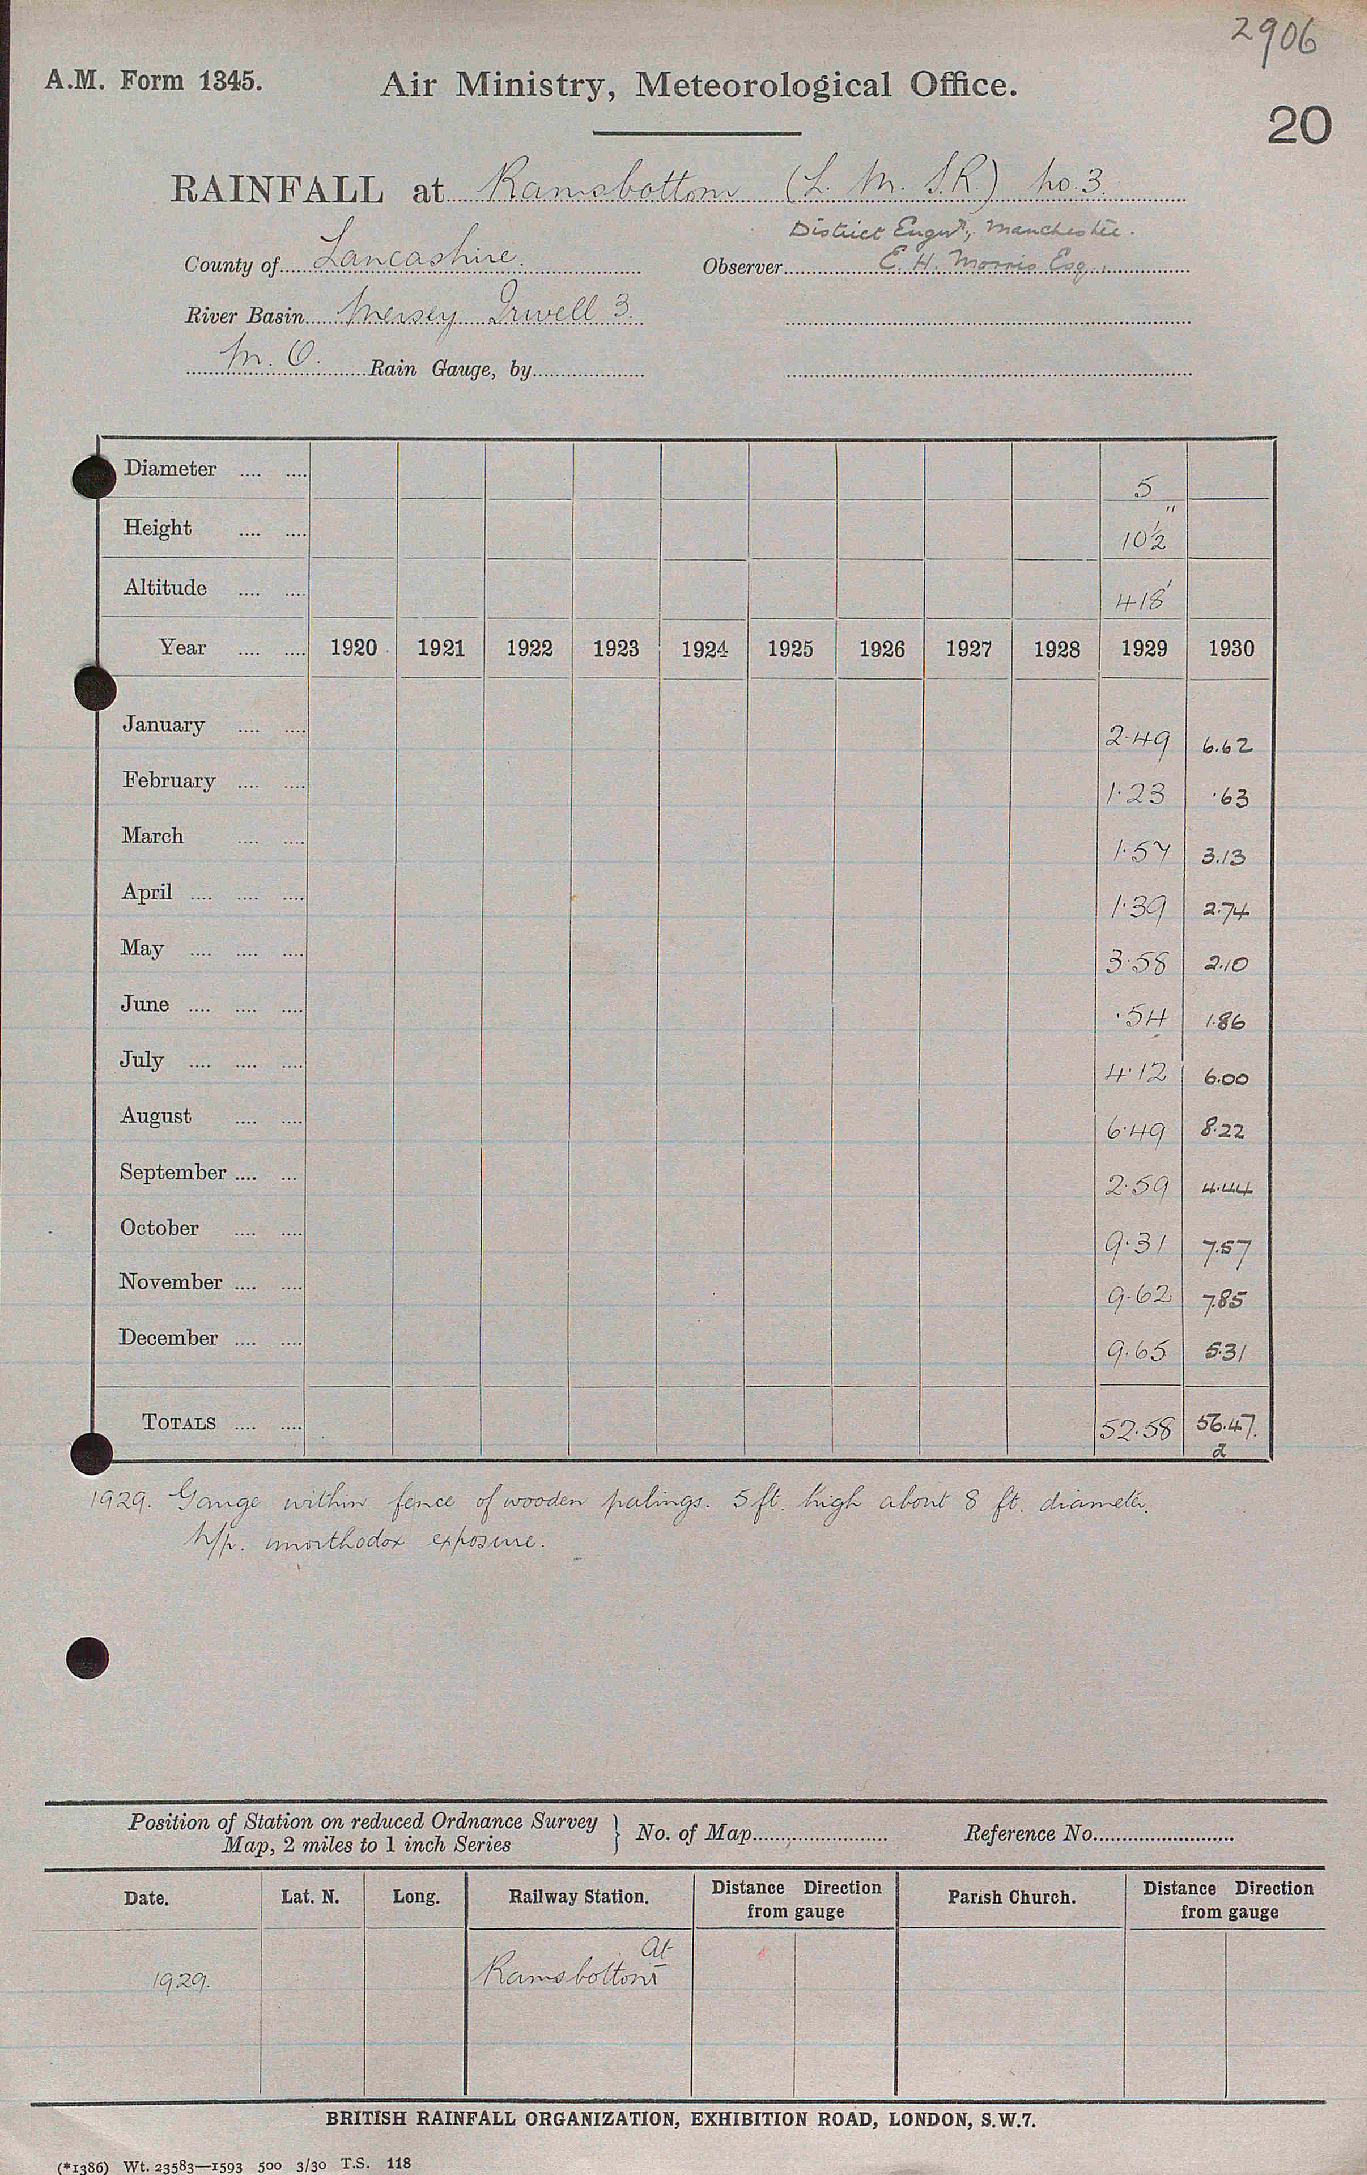 2906
A.M. Form 1345. Air Ministry, Meteorological Office.
20
RAINFALL at Ramsbottom (L. M. S.R) No. 3.
District Engnr, Manchester.
County of Lancashire. Observer E. H. Morris Esq.
River Basin Mersey Irwell 3.
M. O. Rain Gauge, by
Diameter .... .... 5
Height .... .... 10½"
Altitude .... .... 418'
Year .... .... 1920 1921 1922 1923 1924 1925 1926 1927 1928 1929 1930
January .... .... 2.49 6.62
February .... .... 1.23 .63
March .... .... 1.57 3.13
April .... .... .... 1.39 2.74
May .... .... .... 3.58 2.10
June .... .... .... .54 1.86
July .... .... .... 4.12 6.00
August .... .... 6.49 8.22
September .... .... 2.59 4.44
October .... .... 9.31 7.57
November .... .... 9.62 7.85
December .... .... 9.65 5.31
TOTALS .... .... 52.58 56.47.
a
1929. Gauge within fence of wooden palings. 5 ft. high about 8 ft. diameter.
N/p. unorthodox exposure.
Position of Station on reduced Ordnance Survey Map, 2 miles to 1 inch Series } No. of Map Reference No.
Date. Lat. N. Long. Railway Station. Distance Direction from gauge Parish Church. Distance Direction from gauge
At
1929. Ramsbottom
BRITISH RAINFALL ORGANIZATION, EXHIBITION ROAD, LONDON, S.W.7.
(*1386) Wt. 23583—1593 500 3/30 T.S. 118